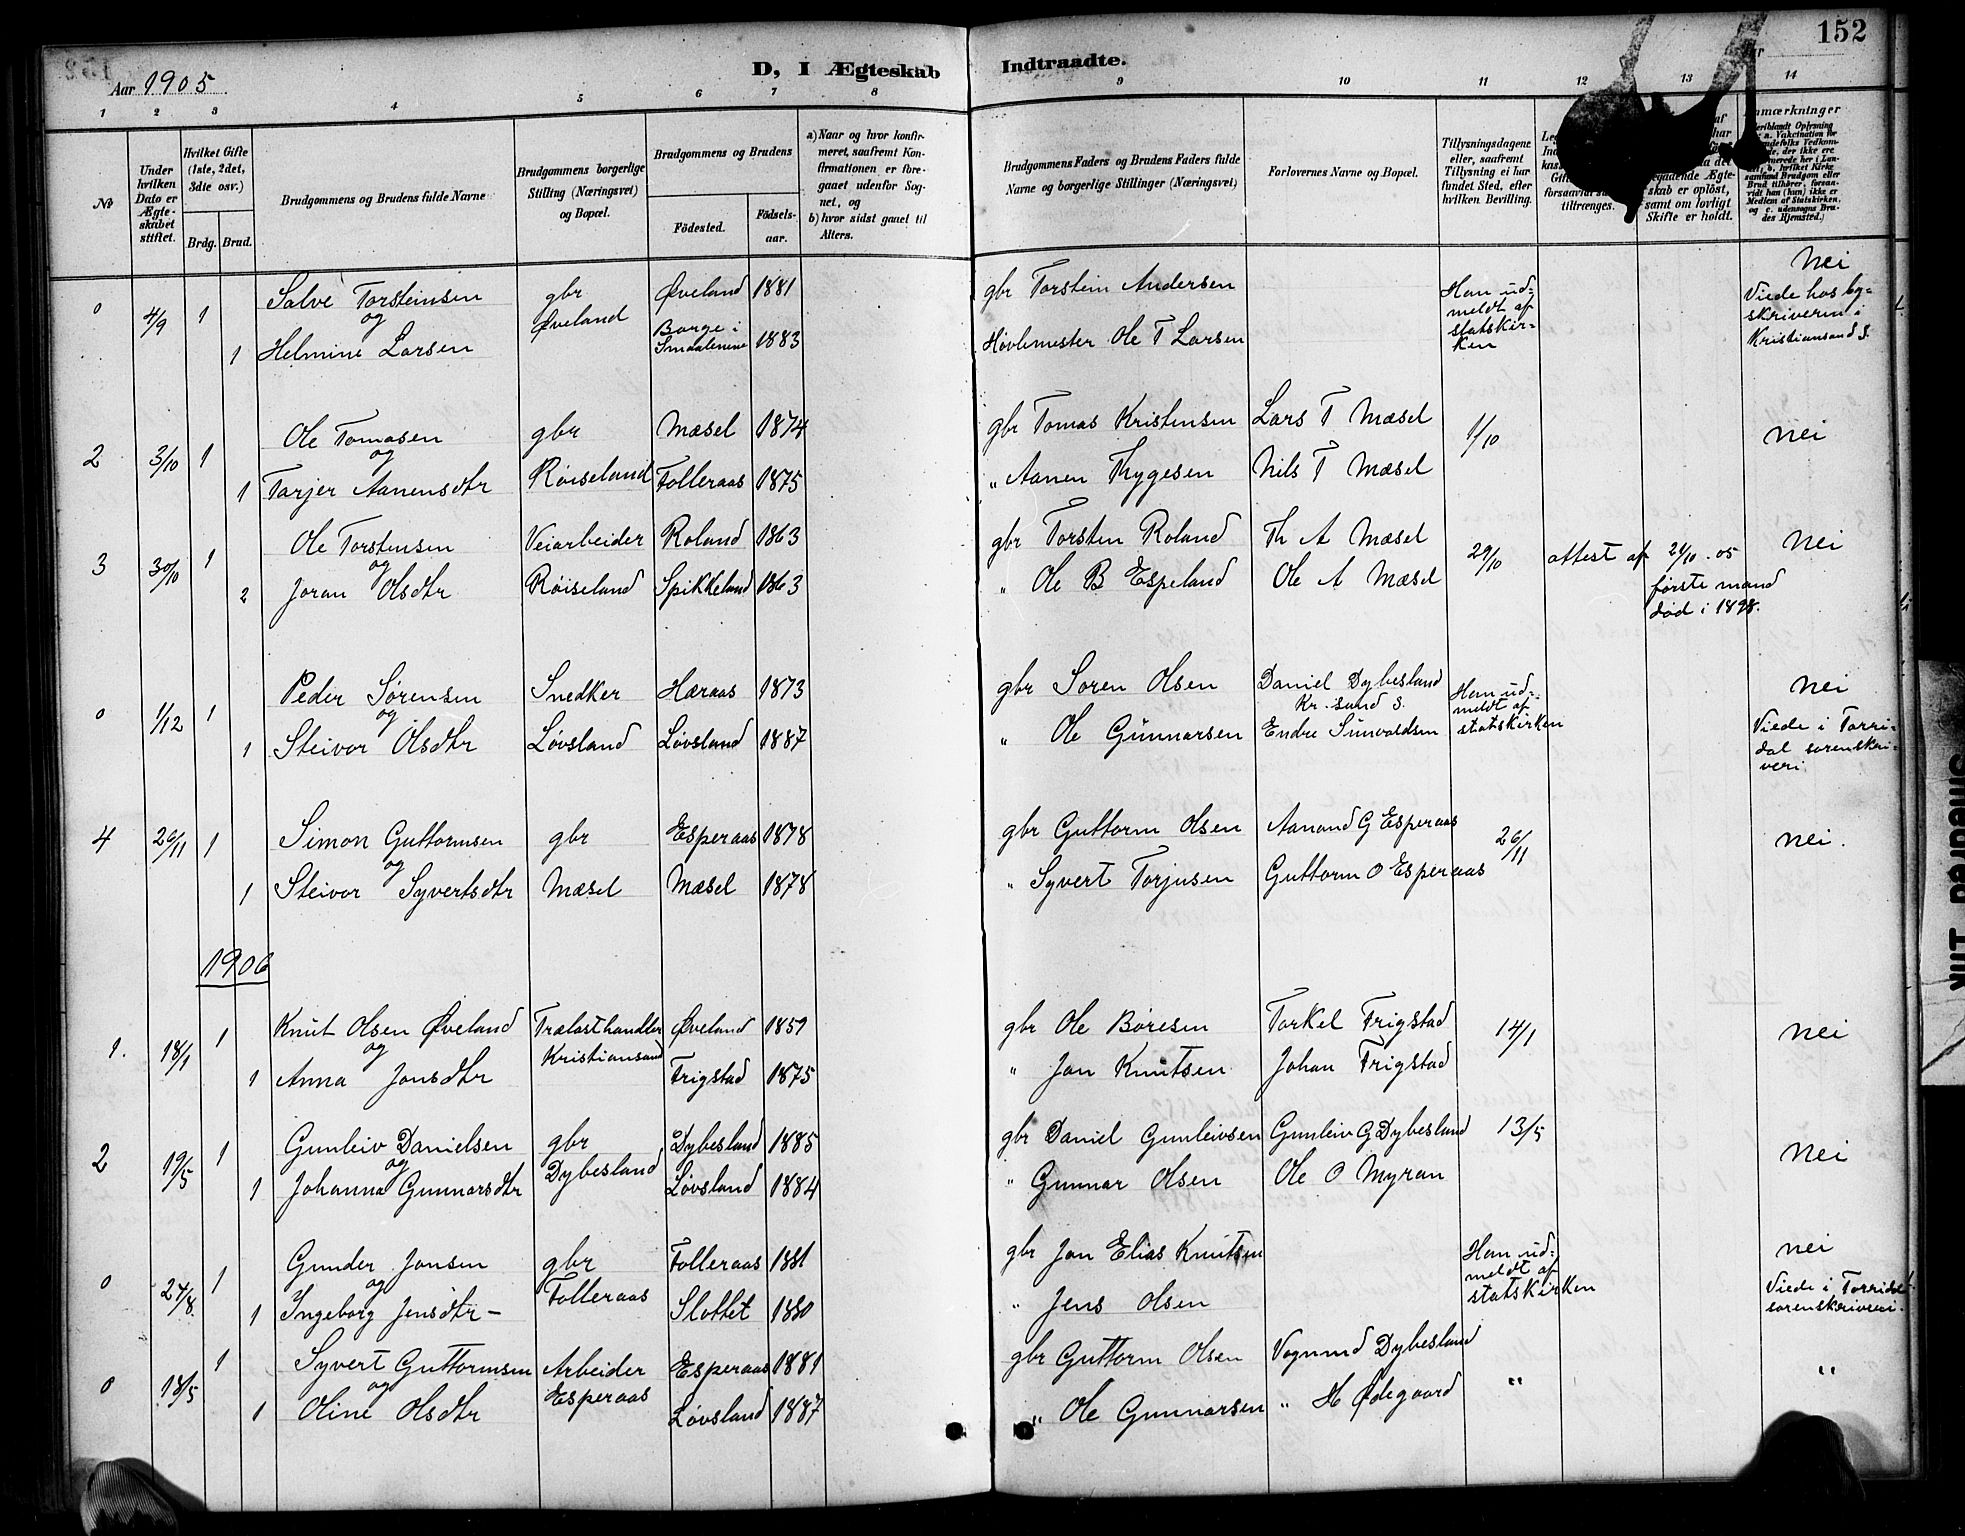 152
Aar 1905.
D, I Ægteskab
Indtraadte.
1 2 3 4 5 6 7 8 9 10 11 12 13 14
No
Under hvilken Dato er Ægteskabet stiftet.
Hvilket Gifte (1ste, 2det, 3die osv.)
Brdg. Brud.
Brudgommens og Brudens fulde Navne
Brudgommens borgerlige Stilling (Næringsvei) og Bopæl.
Brudgommens og Brudens
Födested.
Födselsaar.
a) Naar og hvor konfirmeret, saafremt Konfirmationen er foregaaet udenfor Sognet, og
b) hvor sidst gaaet til Alters.
Brudgommens Faders og Brudens Faders fulde Navne og borgerlige Stillinger (Næringsvei)
Forlovernes Navne og Bopæl.
Tillysningsdagene eller, saafremt Tillysning ei har fundet Sted, efter hvilken Bevilling.
tiltrænges.
Ægteskab er oplöst, samt om lovligt Skifte er holdt.
0 4/9 1 Salve Torsteinsen gbr Øveland 1881 gbr Torstein Andersen Han udmeldt af statskirken nei
og Øveland Viede hos byskriveren i Kristiansand S.
1 Helmine Larsen Borge i Smaalenene 1883 Høvlemester Ole T Larsen
2 3/10 1 Ole Tomasen gbr Mæsel 1874 gbr Tomas Kristensen Lars T Mæsel 1/10 nei
og
1 Tarjer Aanensdtr Røiseland Folleraas 1875 " Aanen Thygesen Nils T Mæsel
3 30/10 1 Ole Torstensen Veiarbeider Roland 1863 gbr Torsten Roland Th A Mæsel 29/10 attest af 21/10.05 nei
og
2 Joran Olsdtr Røiseland Spikkeland 1863 " Ole B Espeland Ole A Mæsel første mand død i 1898.
0 1/12 1 Peder Sørensen Snedker Høraas 1873 gbr Søren Olsen Daniel Dybesland Kr.sand S. Han udmeldt af statskirken nei
og
1 Steivor Olsdtr Løvsland Løvsland 1887 " Ole Gunnarsen Endre Sunvoldsen Viede i Torridal sorenskriveri
4 26/11 1 Simon Guttormsen gbr Esperaas 1878 gbr Guttorm Olsen Aanand G Esperaas 26/11 nei.
og
1 Steivor Syvertsdtr Mæsel Mæsel 1878 " Syvert Torjusen Guttorm O Esperaas
1906
1. 18/1 1 Knut Olsen Øveland Trælasthandler Øveland 1859 gbr Ole Børesen Torkel Frigstad 14/1 nei
og Kristiansand
1 Anna Jonsdtr Frigstad 1875 " Jon Knutsen Johan Frigstad
2 19/5 1 Gunleiv Danielsen gbr Dybesland 1885 gbr Daniel Gunleivsen Gunleiv G Dybesland 13/5 nei
og Dybesland
1 Johanna Gunnarsdtr Løvsland 1884 " Gunnar Olsen Ole O Myran
0 24/8. 1 Gunder Jonsen gbr Folleraas 1881 gbr Jon Elias Knutsen Han udmeldt af statskirken nei
og Folleraas
1 Ingeborg Jensdtr - Slottet 1880 " Jens Olsen Viede i Torridal sorenskriveri.
0 18/5 1 Syvert Guttormsen Arbeider Esperaas 1881 gbr Guttorm Olsen Vognund Dybesland " "
og Esperaas
1 Oline Olsdtr Løvsland 1887 " Ole Gunnarsen " H Ødegaard